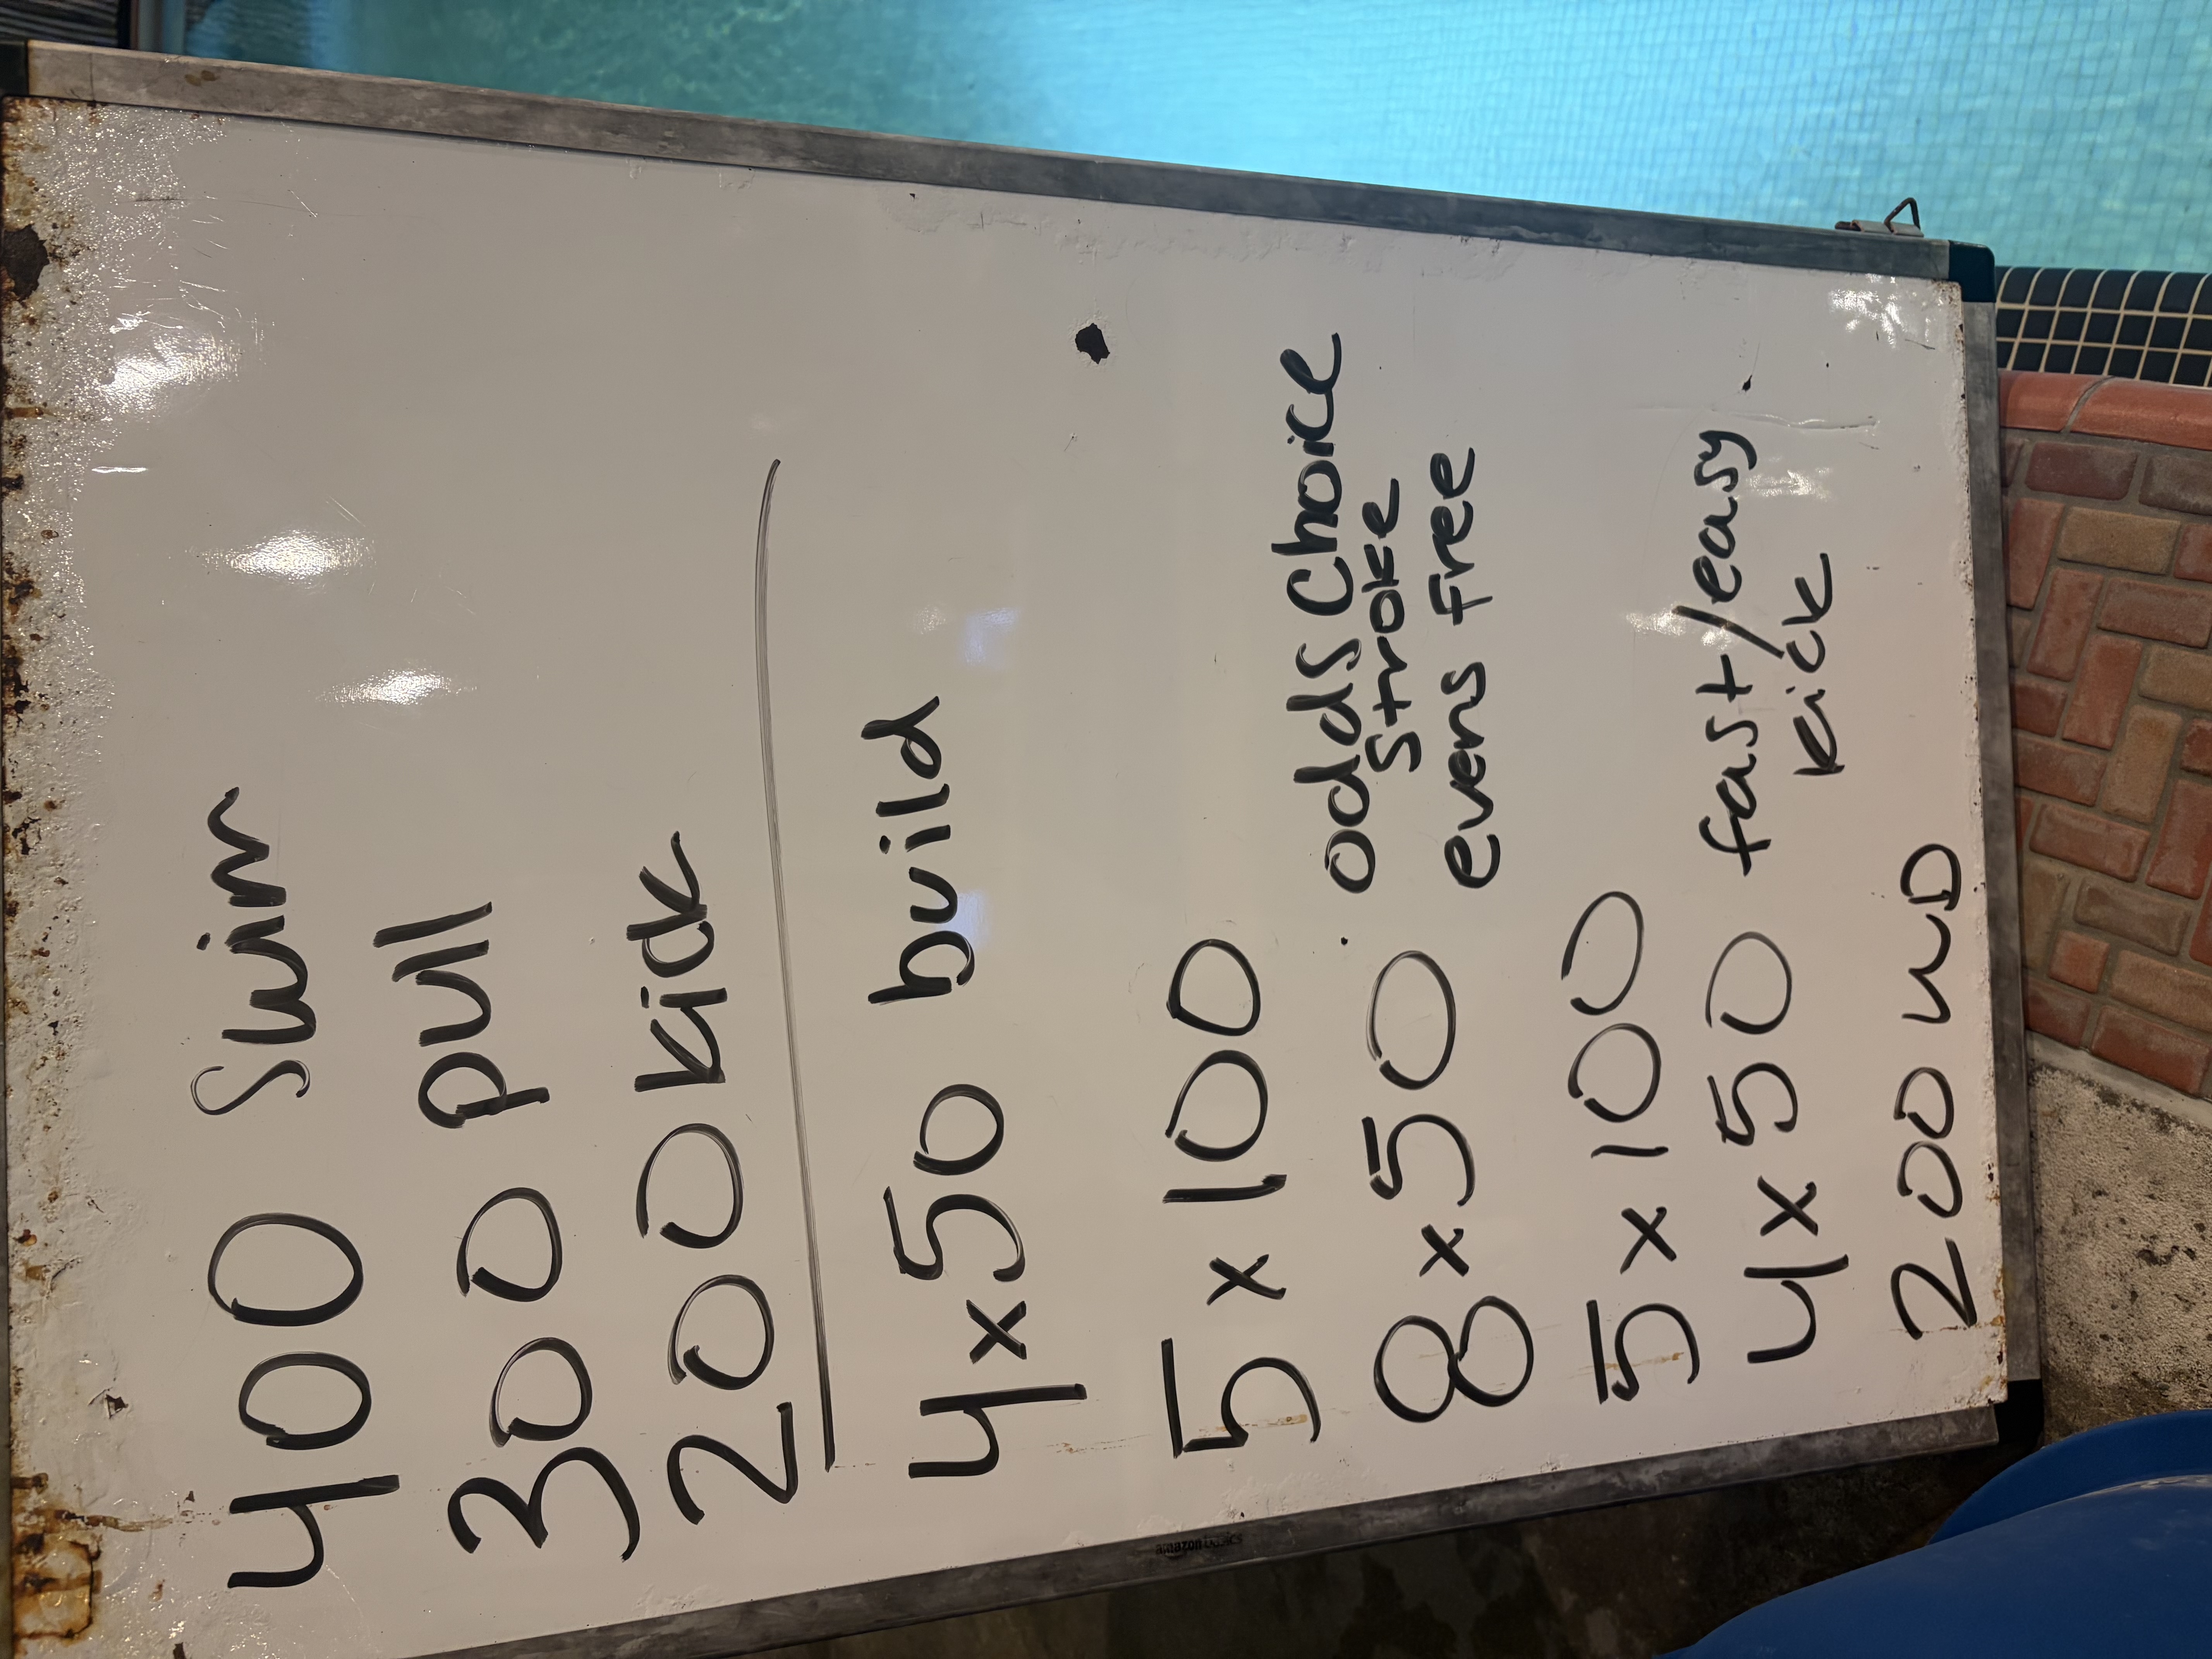 400 Swim
300 pull
200 kick
4x50 build
5 x 100
8 x 50 odds Choice
Stroke
evens Free
5 x 100
4x50 fast/easy
kick
200 WD
amazon basics